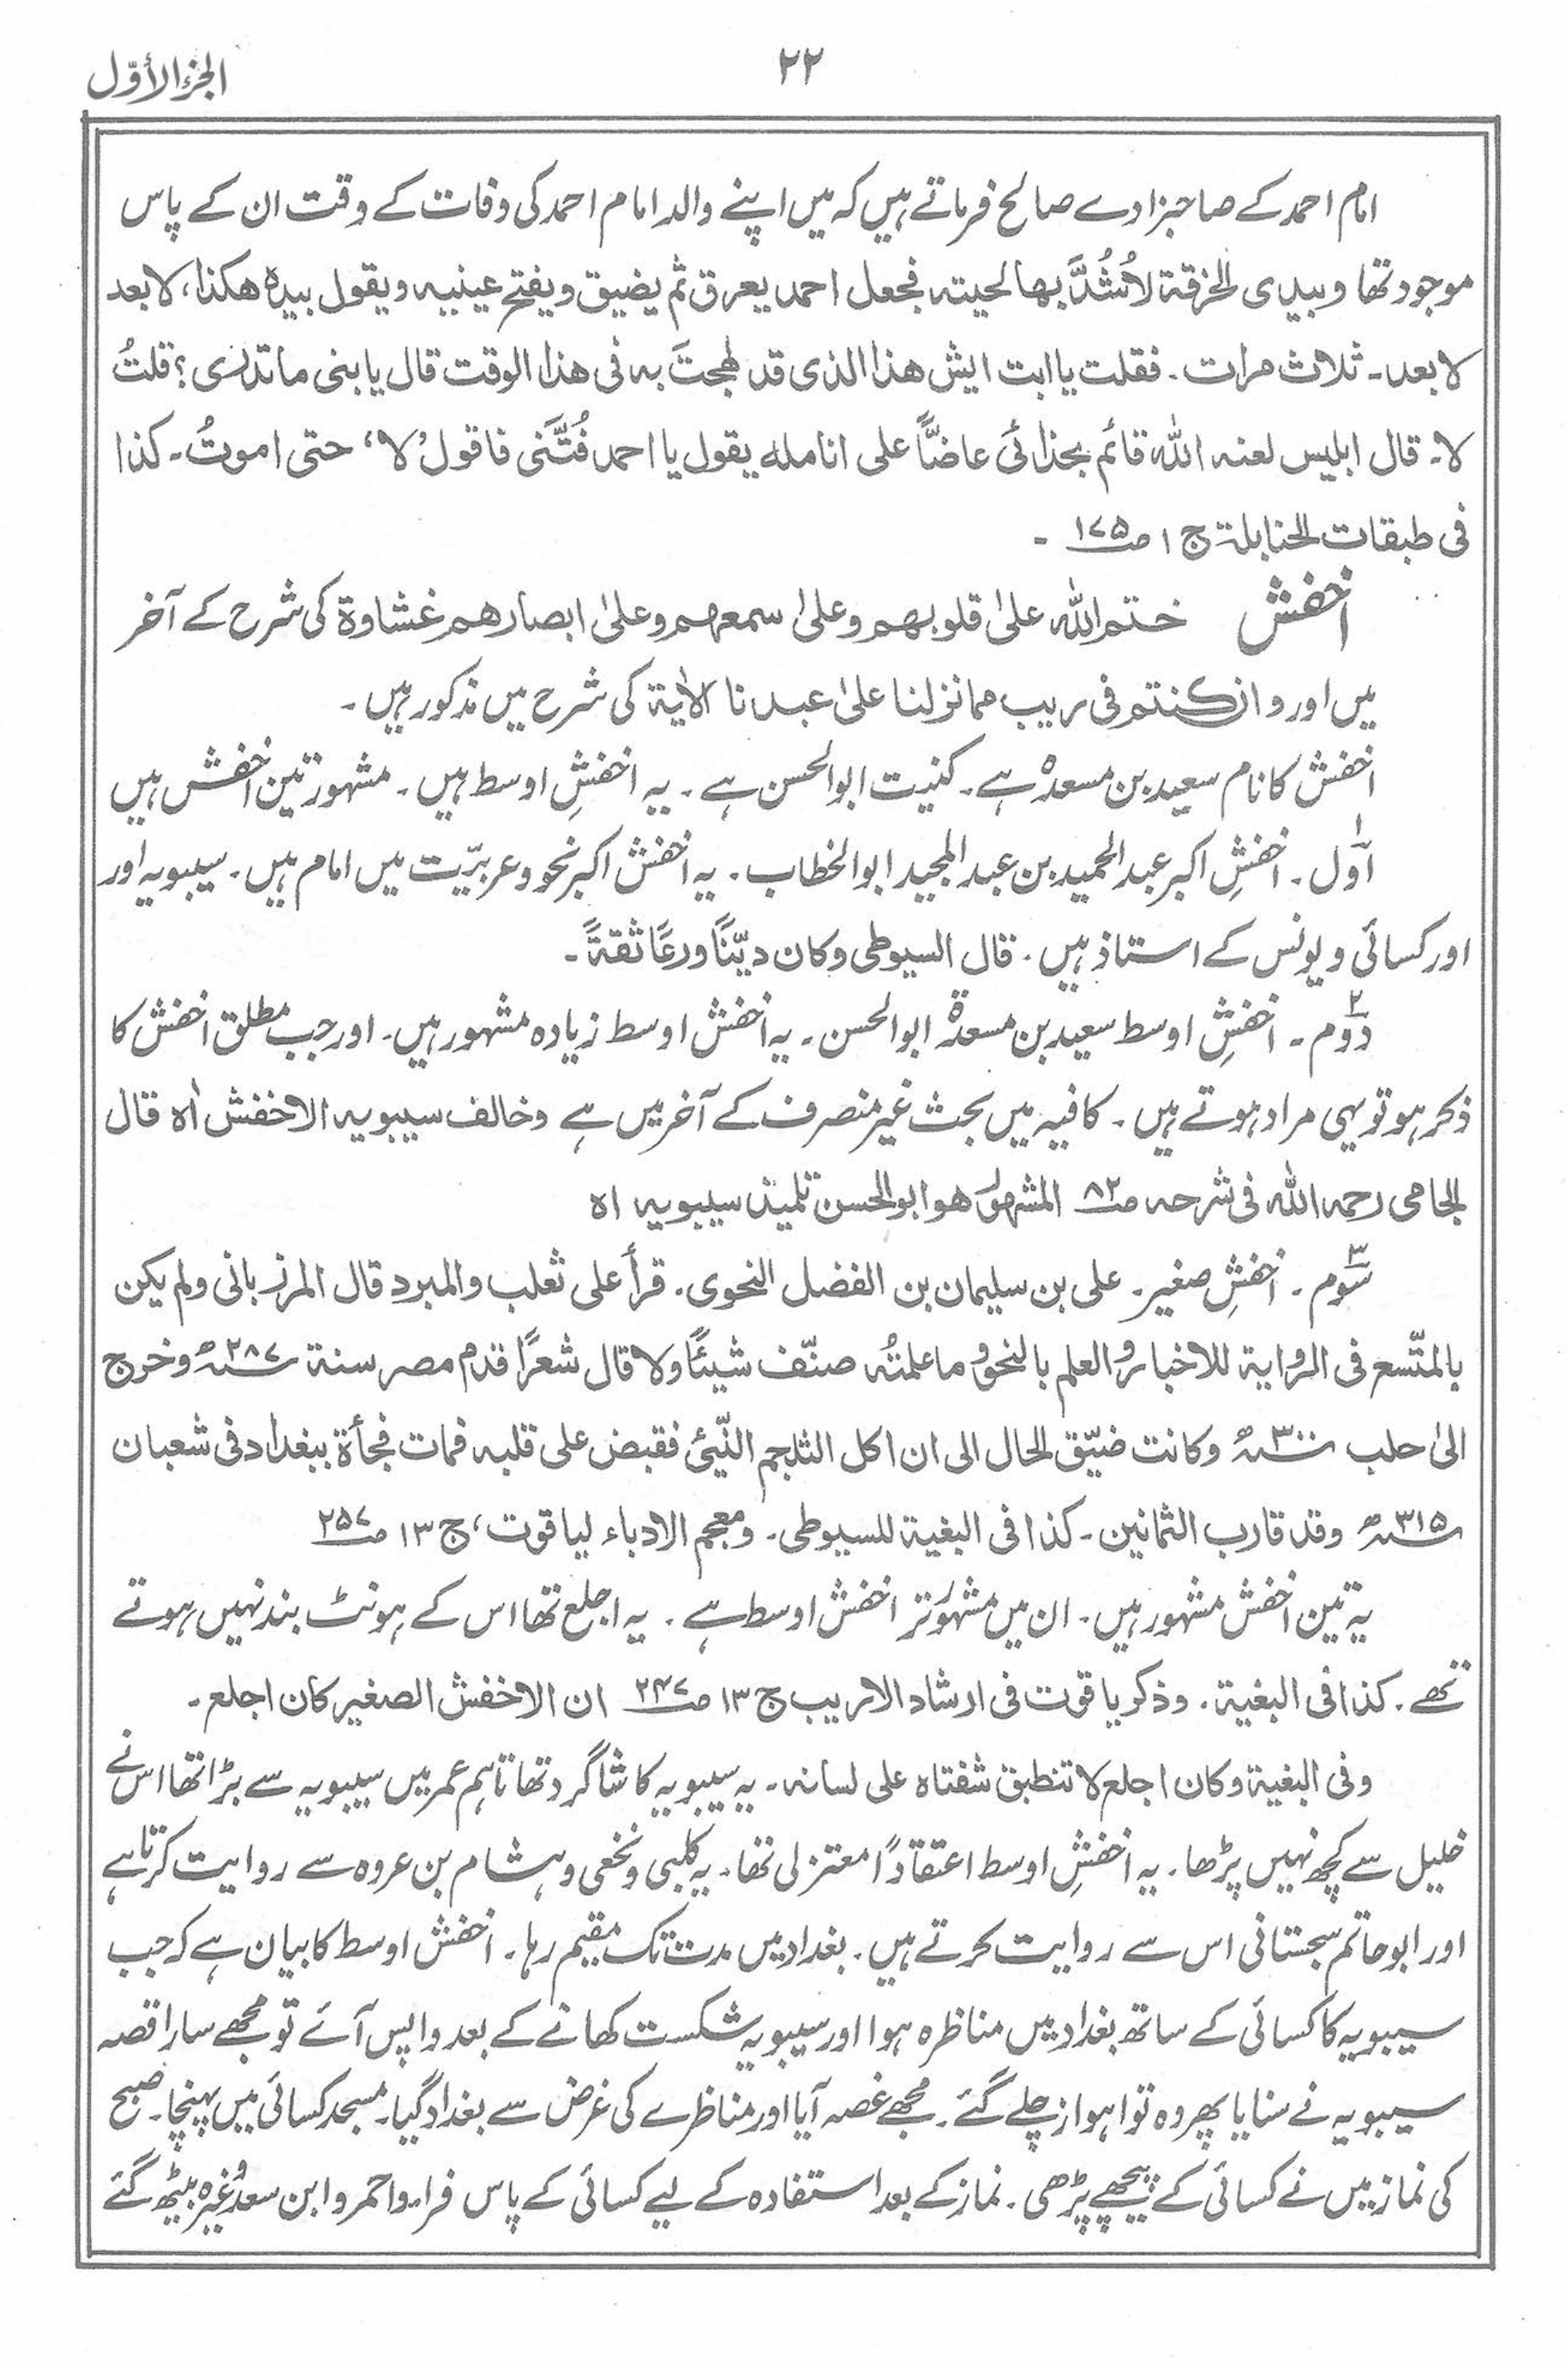 الجزء الأوّل
۲۲
امام احمد کے صاحبزادے صالح فرماتے ہیں کہ میں اپنے والد امام احمد کی وفات کے وقت ان کے پاس
موجود تھا وبیدی الخرقۃ لاشُدَّ بھا لحیتہ فجعل احمد یعرق ثم یضیق ویفتح عینیہ ویقول بیدہ ھکذا، لا بعد
لا بعد۔ ثلاث مرات۔ فقلت یا ابت ایش ھذا الذی قد لھجتَ بہ فی ھذا الوقت قال یا بنی ما تدری؟ قلتُ
لا۔ قال ابلیس لعنہ اللہ قائم بحذائی عاضّاً علی انامله یقول یا احمد فُتَّنی فاقول ’لا‘ حتی اموتُ۔ کذا
فی طبقات الحنابلۃ ج ۱ ص ۱۷۵ ۔
اخفش ختم اللہ علیٰ قلوبھم وعلیٰ سمعھم وعلیٰ ابصارھم غشاوۃ کی شرح کے آخر
میں اور وان کنتم فی ریب مما نزلنا علیٰ عبدنا الاٰیۃ کی شرح میں مذکور ہیں۔
اخفش کا نام سعید بن مسعدہ ہے۔ کنیت ابوالحسن ہے۔ یہ اخفشِ اوسط ہیں۔ مشہور تین اخفش ہیں
۱ اوّل۔ اخفشِ اکبر عبدالحمید بن عبدالمجید ابوالخطاب۔ یہ اخفش اکبر نحو و عربیّت میں امام ہیں۔ سیبویہ اور
اور کسائی و یونس کے استاذ ہیں۔ قال السیوطی وکان دیّنًا ورعًا ثقۃً۔
۲ دوّم۔ اخفشِ اوسط سعید بن مسعدۃ ابوالحسن۔ یہ اخفش اوسط زیادہ مشہور ہیں۔ اور جب مطلق اخفش کا
ذکر ہو تو یہی مراد ہوتے ہیں۔ کافیہ میں بحث غیر منصرف کے آخر میں ہے وخالف سیبویہ الاخفش اھ قال
الجامی رحمہ اللہ فی شرحہ ص ۸۲ المشہور ھو ابو الحسن تلمیذ سیبویہ اھ
۳ سوّم۔ اخفشِ صغیر۔ علی بن سلیمان بن الفضل النحوی۔ قرأ علی ثعلب والمبرد قال المرزبانی ولم یکن
بالمتّسع فی الروایۃ للاخبار والعلم بالنحو وما علمتُہ صنّف شیئًا ولا قال شعرًا قدم مصر سنۃ ۲۸۷ھ وخرج
الیٰ حلب ۳۰۰ھ وکانت ضیّق الحال الی ان اکل الثلجم النّیئ فقبض علی قلبہ فمات فجأۃ ببغداد فی شعبان
۳۱۵ھ وقد قارب الثمانین۔ کذا فی البغیۃ للسیوطی۔ ومعجم الادباء لیاقوت، ج ۱۳ ص ۲۵۷
یہ تین اخفش مشہور ہیں۔ ان میں مشہور تر اخفش اوسط ہے۔ یہ اجلع تھا اس کے ہونٹ بند نہیں ہوتے
تھے۔ کذا فی البغیۃ۔ وذکر یاقوت فی ارشاد الاریب ج ۱۳ ص ۲۴۷ ان الاخفش الصغیر کان اجلع۔
وفی البغیۃ وکان اجلع لا تنطبق شفتاہ علی لسانہ۔ یہ سیبویہ کا شاگرد تھا تاہم عمر میں سیبویہ سے بڑا تھا اس نے
خلیل سے کچھ نہیں پڑھا۔ یہ اخفشِ اوسط اعتقادًا معتزلی تھا۔ یہ کلبی و نخعی و ہشام بن عروہ سے روایت کرتا ہے
اور ابو حاتم سجستانی اس سے روایت کرتے ہیں۔ بغداد میں مدت تک مقیم رہا۔ اخفش اوسط کا بیان ہے کہ جب
سیبویہ کا کسائی کے ساتھ بغداد میں مناظرہ ہوا اور سیبویہ شکست کھانے کے بعد واپس آئے تو مجھے سارا قصہ
سیبویہ نے سنایا پھر وہ تو اہواز چلے گئے۔ مجھے غصہ آیا اور مناظرے کی غرض سے بغداد گیا۔ مسجد کسائی میں پہنچا۔ صبح
کی نماز میں نے کسائی کے پیچھے پڑھی۔ نماز کے بعد استفادہ کے لیے کسائی کے پاس فراء واحمر و ابن سعد وغیرہ بیٹھ گئے